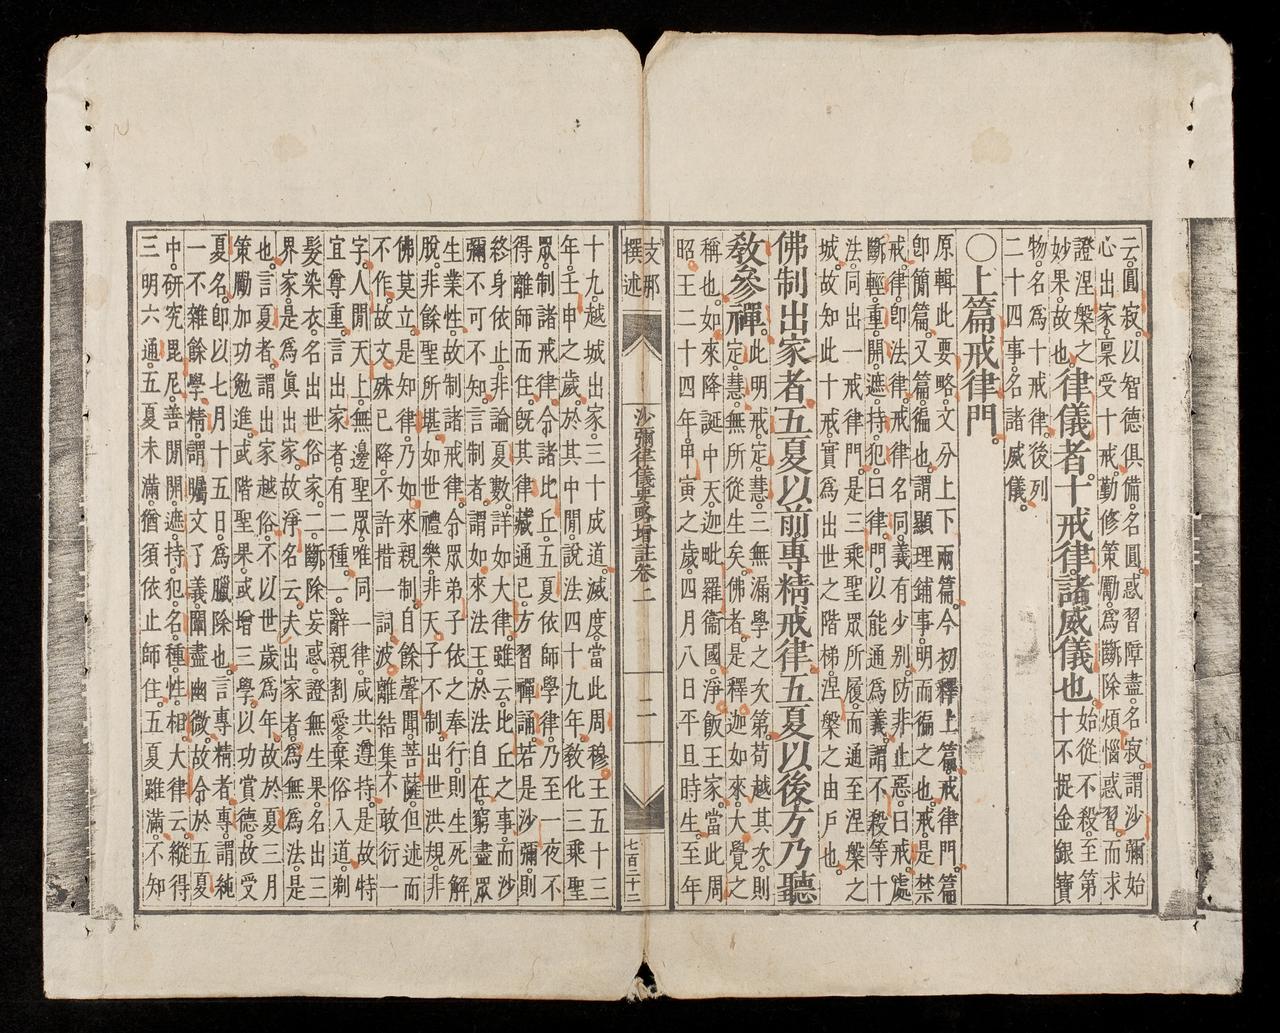 云。圓寂。以智德俱備。名圓。惑習障盡。名寂。謂沙彌始
心出家。稟受十戒。勤修策勵。爲斷除煩惱惑習。而求
證涅槃之
妙果。故也。律儀者。十戒律諸威儀也。始從不殺。至第
十不捉金銀寶
物。名爲十戒律。後列
二十四事。名諸威儀。
〇上篇戒律門。
原輯此要略。文分上下兩篇。今初釋上篇。戒律門。篇
卽簡篇。又篇。徧也。謂顯理鋪事。明而徧之也。戒。是禁
戒。律。卽法律。戒律名同。義有少別。防非止惡。曰戒。處
斷輕重。開遮持犯。曰律。門。以能通爲義。謂不殺等十
法。同出一戒律門。是三乘聖眾所履。而通至涅槃之
城。故知此十戒。實爲出世之階梯。涅槃之由戶也。
佛制出家者。五夏以前。專精戒律。五夏以後。方乃聽
敎參禪。此明戒定慧。三無漏學之次第。苟越其次。則
定慧無所從生矣。佛者。是釋迦如來。大覺之
稱也。如來降誕中天迦毗羅衞國。淨飯王家。當此周
昭王二十四年。甲寅之歲。四月八日平旦時生。至年
支那
撰述
沙彌律儀要略增註卷上
二
七百二十二
十九。越城出家。三十成道。滅度。當此周穆王五十三
年。壬申之歲。於其中閒。說法四十九年。敎化三乘聖
眾。制諸戒律。令諸比丘。五夏依師學律。乃至一夜不
得離師而住。旣其律藏通已。方習禪誦。若是沙彌。則
終身依止。非論夏數。詳如大律。雖云。比丘之事。而沙
彌不可不知。言制者。謂如來法王。於法自在。窮盡眾
生業性。故制諸戒律。令眾弟子依之奉行。則生死解
脫。非餘聖所堪。如世禮樂。非天子不制。出世洪規。非
佛莫立。是知律。乃如來親制。自餘聲聞。菩薩。但述而
不作。故文殊已降。不許措一詞。波離結集。不敢衍一
字。人閒天上。無邊聖眾。唯同一律。咸共遵持。是故特
宜尊重。言出家者。有二種。一。辭親割愛。棄俗入道。剃
髮染衣。名出世俗家。二。斷除妄惑。證無生果。名出三
界家。是爲眞出家。故淨名云。夫出家者。爲無爲法。是
也。言夏者。謂出家越俗。不以世歲爲年。故於夏三月
策勵加功。勉進。或階聖果。或增三學。以功賞德。故受
夏名。卽以七月十五日。爲臘除也。言專精者。專。謂純
一不雜餘學。精。謂囑文了義。闡盡幽微。故令於五夏
中。研究毘尼。善閒開遮持犯。名種性相。大律云。縱得
三明六通。五夏未滿。猶須依止師住。五夏雖滿。不知